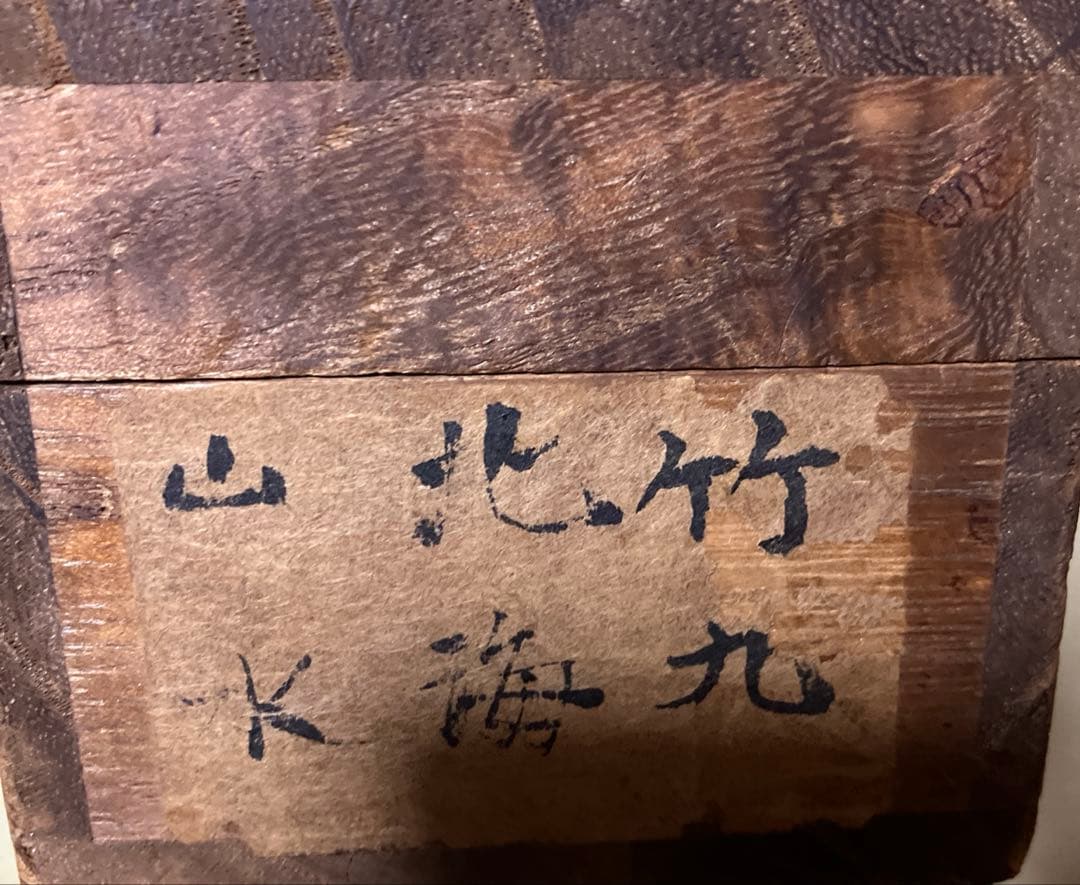 竹九
北海
山水